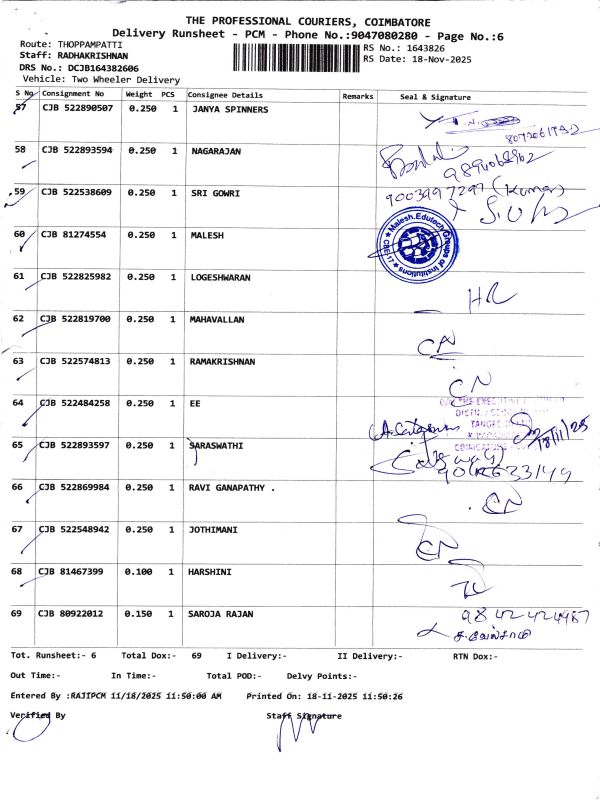 THE PROFESSIONAL COURIERS, COIMBATORE
Delivery Runsheet - PCM - Phone No.:9047080280 - Page No.:6
Route: THOPPAMPATTI RS No.: 1643826
Staff: RADHAKRISHNAN RS Date: 18-Nov-2025
DRS No.: DCJB164382606
Vehicle: Two Wheeler Delivery
S No Consignment No Weight PCS Consignee Details Remarks Seal & Signature
57 CJB 522890507 0.250 1 JANYA SPINNERS
58 CJB 522893594 0.250 1 NAGARAJAN
59 CJB 522538609 0.250 1 SRI GOWRI 9003997297 (Kumar)
60 CJB 81274554 0.250 1 MALESH Malesh Edutech Groups of Institutions CBE-17
61 CJB 522825982 0.250 1 LOGESHWARAN
62 CJB 522819700 0.250 1 MAHAVALLAN CN
63 CJB 522574813 0.250 1 RAMAKRISHNAN CN
64 CJB 522484258 0.250 1 EE 18/11/25
65 CJB 522893597 0.250 1 SARASWATHI
66 CJB 522869984 0.250 1 RAVI GANAPATHY . CN
67 CJB 522548942 0.250 1 JOTHIMANI CN
68 CJB 81467399 0.100 1 HARSHINI
69 CJB 80922012 0.150 1 SAROJA RAJAN 9842424987
Tot. Runsheet:- 6 Total Dox:- 69 I Delivery:- II Delivery:- RTN Dox:-
Out Time:- In Time:- Total POD:- Delvy Points:-
Entered By :RAJIPCM 11/18/2025 11:50:00 AM Printed On: 18-11-2025 11:50:26
Verified By Staff Signature